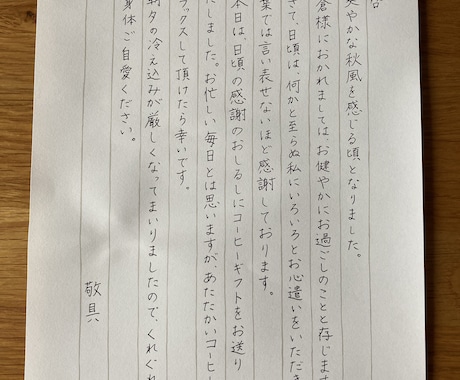 爽やかな秋風を感じる頃となりました。
倉様におかれましては、お健やかにお過ごしのことと存じます
さて、日頃は、何かと至らぬ私にいろいろとお心遣いをいただき
葉では言い表せないほど感謝しております。
本日は、日頃の感謝のおしるしにコーヒーギフトをお送り
たしました。お忙しい毎日とは思いますが、あたたかいコーヒー
ラックスして頂けたら幸いです。
朝夕の冷え込みが厳しくなってまいりましたので、くれぐれ
身体ご自愛ください。
敬具